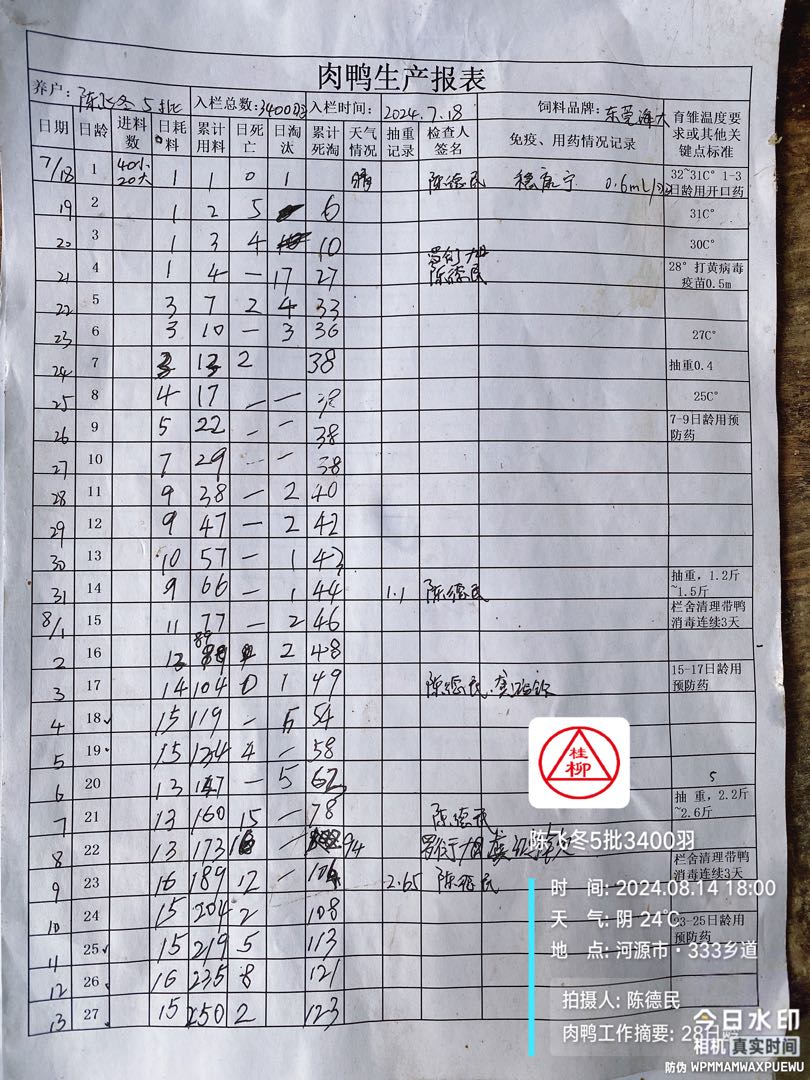 肉鸭生产报表
养户: 陈飞冬 5批 入栏总数: 3400羽 入栏时间: 2024.7.18 饲料品牌: 东莞海大 育雏温度要求或其他关键点标准
日期 日龄 进料数 日耗料 累计用料 日死亡 日淘汰 累计死淘 天气情况 抽重记录 检查人签名 免疫、用药情况记录
7/18 1 40小 20大 1 1 0 1 晴 陈德民 稳康宁 0.6mL/ 32~31C° 1-3日龄用开口药
19 2 1 2 5 6 31C°
20 3 1 3 4 10 30C°
21 4 1 4 - 17 27 陈德民 28° 打黄病毒疫苗0.5m
22 5 3 7 2 4 33
23 6 3 10 - 3 36 27C°
24 7 3 13 2 38 抽重0.4
25 8 4 17 - - 38 25C°
26 9 5 22 - - 38 7-9日龄用预防药
27 10 7 29 - - 38
28 11 9 38 - 2 40
29 12 9 47 - 2 42
30 13 10 57 - 1 43
31 14 9 66 - 1 44 1.1 陈德民 抽重，1.2斤~1.5斤
8/1 15 11 77 - 2 46 栏舍清理带鸭消毒连续3天
2 16 12 89 2 48
3 17 14 104 0 1 49 陈德民 15-17日龄用预防药
4 18 15 119 - 5 54
5 19 15 134 4 - 58
6 20 13 147 - 5 62 5
7 21 13 160 15 - 78 陈德民 抽 重，2.2斤~2.6斤
8 22 13 173 16 - 94
9 23 16 189 12 - 106 2.65 陈德民 栏舍清理带鸭消毒连续3天
10 24 15 204 2 108
11 25 15 219 5 113 23-25日龄用预防药
12 26 16 235 8 121
13 27 15 250 2 123
桂柳
陈飞冬5批3400羽
时 间: 2024.08.14 18:00
天 气: 阴 24℃
地 点: 河源市·333乡道
拍摄人: 陈德民
肉鸭工作摘要: 28日龄
今日水印
相机 真实时间
防伪 WPMMAMWAXPUEWU